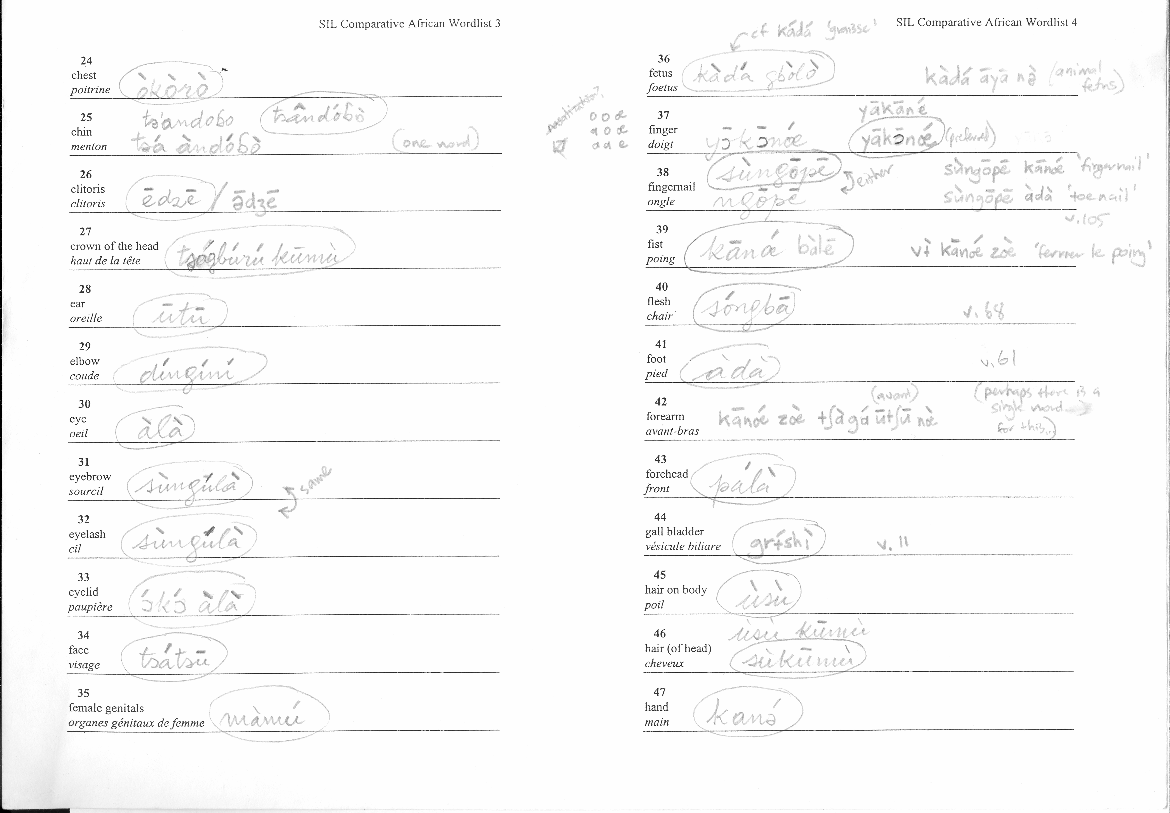 SIL Comparative African Wordlist 3
24
chest
poitrine òkòrò
25
chin tsandobo tsāndóbò
menton tsá àndóbò (one word)
26
clitoris
clitoris ēdzē / ādʒē
27
crown of the head
haut de la tête tságbúrú kūmù
28
ear
oreille ūtū
29
elbow
coude díngíní
30
eye
oeil àlà
31
eyebrow
sourcil sùngúlà
same
32
eyelash
cil sùngúlà
33
eyelid
paupière ɔ́kɔ́ àlà
34
face
visage tsátsū
35
female genitals
organes génitaux de femme màmú
SIL Comparative African Wordlist 4
cf kádá
36
fetus kàdá gbòlò kàdá āyā nə̄ (animal fetus)
foetus
37
yākāné
finger
doigt yɔ̄kɔ̄nóe yākɔnóe (preferred)
38
fingernail sùngōpē either sùngōpē kānóe 'fingernail'
ongle ngōpē sùngōpē àdà 'toe nail'
v.105
39
fist
poing kāná bàlē vɨ̀ kānóe zoè 'fermer le poing'
40
flesh
chair sóngbā v. 68
41
foot
pied àdà v. 61
42
(avant) (perhaps there is a single word for this.)
forearm kānóe zoè tʃàgá ūtʃū nè
avant-bras
43
forehead
front pálà
44
gall bladder
vésicule biliare grɨ̄shì v. 11
45
hair on body
poil ùsù
46
ùsù kūmù
hair (of head)
cheveux sùkūmù
47
hand
main kaná